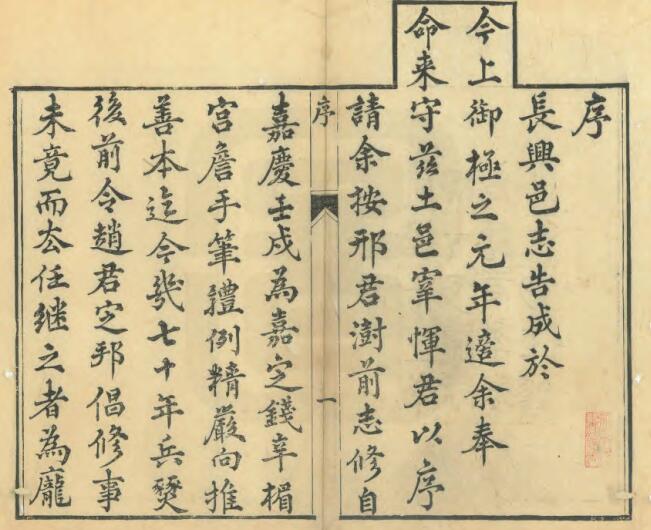 序
長興邑志告成於
今上御極之元年適余奉
命来守茲土邑宰惲君以序
請余按邢君澍前志修自
序
一
嘉慶壬戌為嘉定錢辛楣
宫詹手筆體例精嚴向推
善本迄今幾七十年兵燹
後前令趙君定邦倡修事
未竟而去任継之者為龐